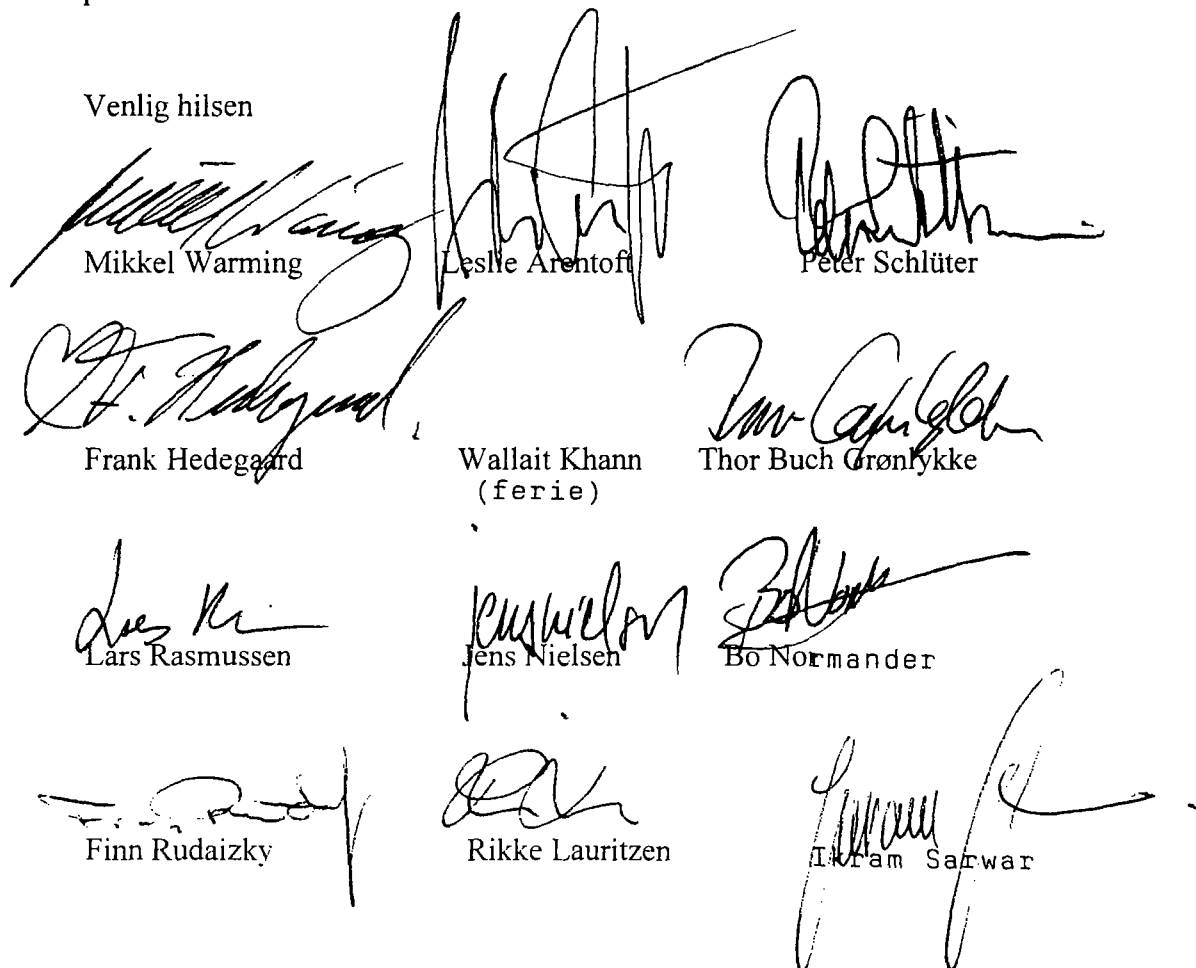 Venlig hilsen
Mikkel Warming Leslie Arentoft Peter Schlüter
Frank Hedegaard Wallait Khann Thor Buch Grønlykke
(ferie)
Lars Rasmussen Jens Nielsen Bo Normander
Finn Rudaizky Rikke Lauritzen Ikram Sarwar